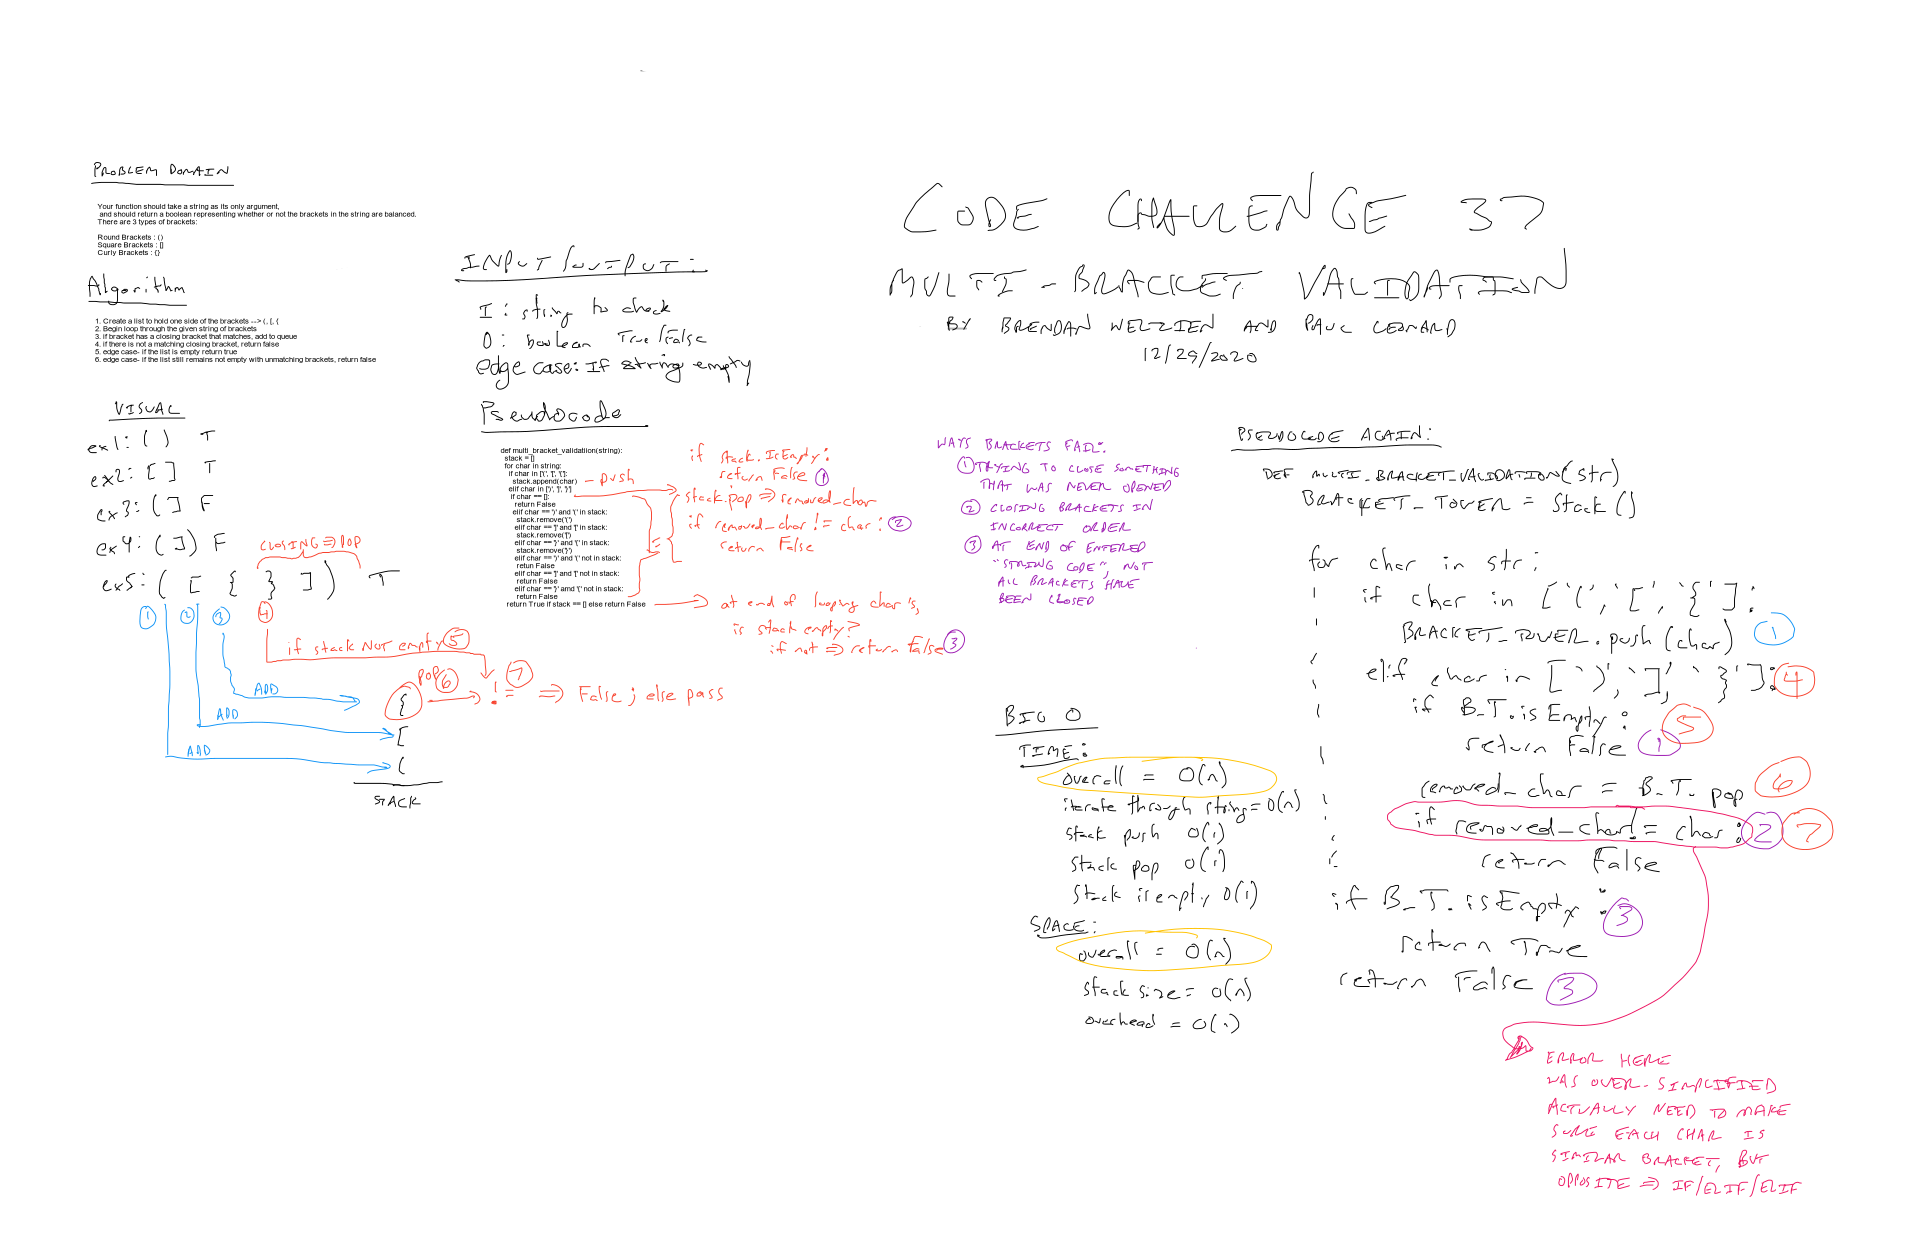 CODE CHALLENGE 37
MULTI-BRACKET VALIDATION
BY BRENDAN WELZIEN AND PAUL LEONARD
12/29/2020
PROBLEM DOMAIN
Your function should take a string as its only argument,
and should return a boolean representing whether or not the brackets in the string are balanced.
There are 3 types of brackets:
Round Brackets : ()
Square Brackets : []
Curly Brackets : {}
Algorithm
1. Create a list to hold one side of the brackets --> (, [, {
2. Begin loop through the given string of brackets
3. if bracket has a closing bracket that matches, add to queue
4. if there is not a matching closing bracket, return false
5. edge case- if the list is empty return true
6. edge case- if the list still remains not empty with unmatching brackets, return false
VISUAL
ex1: ( ) T
ex2: [ ] T
ex3: ( ] F
ex4: ( ] ) F
CLOSING => POP
ex5: ( [ { } ] ) T
1 2 3 4
if stack NOT empty 5
POP 6 7
ADD { != => False; else pass
ADD [
ADD (
STACK
INPUT/OUTPUT:
I: string to check
O: boolean True/False
edge case: If string empty
Pseudocode
def multi_bracket_validatiion(string):
stack = []
for char in string:
if char in ['(', '[', '{']:
stack.append(char)
elif char in [')', ']', '}']
if char == []:
return False
elif char == ')' and '(' in stack:
stack.remove('(')
elif char == ']' and '[' in stack:
stack.remove('[')
elif char == '}' and '{' in stack:
stack.remove('{')
elif char == ')' and '(' not in stack:
retun False
elif char == ']' and '[' not in stack:
return False
elif char == '}' and '{' not in stack:
return False
return True if stack == [] else return False
- push
if stack.IsEmpty:
return False 1
stack.pop => removed_char
if removed_char != char: 2
return False
at end of looping char's,
is stack empty?
if not => return False 3
WAYS BRACKETS FAIL:
1 TRYING TO CLOSE SOMETHING
THAT WAS NEVER OPENED
2 CLOSING BRACKETS IN
INCORRECT ORDER
3 AT END OF ENTERED
"STRING CODE", NOT
ALL BRACKETS HAVE
BEEN CLOSED
BIG O
TIME:
overall = O(n)
iterate through string = O(n)
stack push O(1)
stack pop O(1)
stack is empty O(1)
SPACE:
overall = O(n)
stack size = O(n)
overhead = O(1)
PSEUDOCODE AGAIN:
DEF MULTI_BRACKET_VALIDATION(str)
BRACKET_TOWER = Stack()
for char in str:
if char in ['(', '[', '{']:
BRACKET_TOWER.push(char) 1
elif char in [')', ']', '}']: 4
if B_T.isEmpty: 5
return False 1
removed_char = B_T.pop 6
if removed_char != char: 2 7
return False
if B_T.isEmpty: 3
return True
return False 3
ERROR HERE
WAS OVER-SIMPLIFIED
ACTUALLY NEED TO MAKE
SURE EACH CHAR IS
SIMILAR BRACKET, BUT
OPPOSITE => IF/ELIF/ELIF